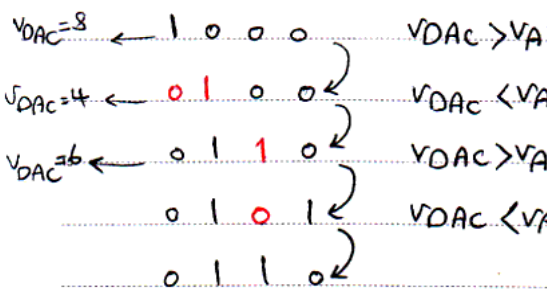 V_DAC=8 ← 1 0 0 0 V_DAC > V_A
V_DAC=4 ← 0 1 0 0 V_DAC < V_A
V_DAC=6 ← 0 1 1 0 V_DAC > V_A
0 1 0 1 V_DAC < V_A
0 1 1 0